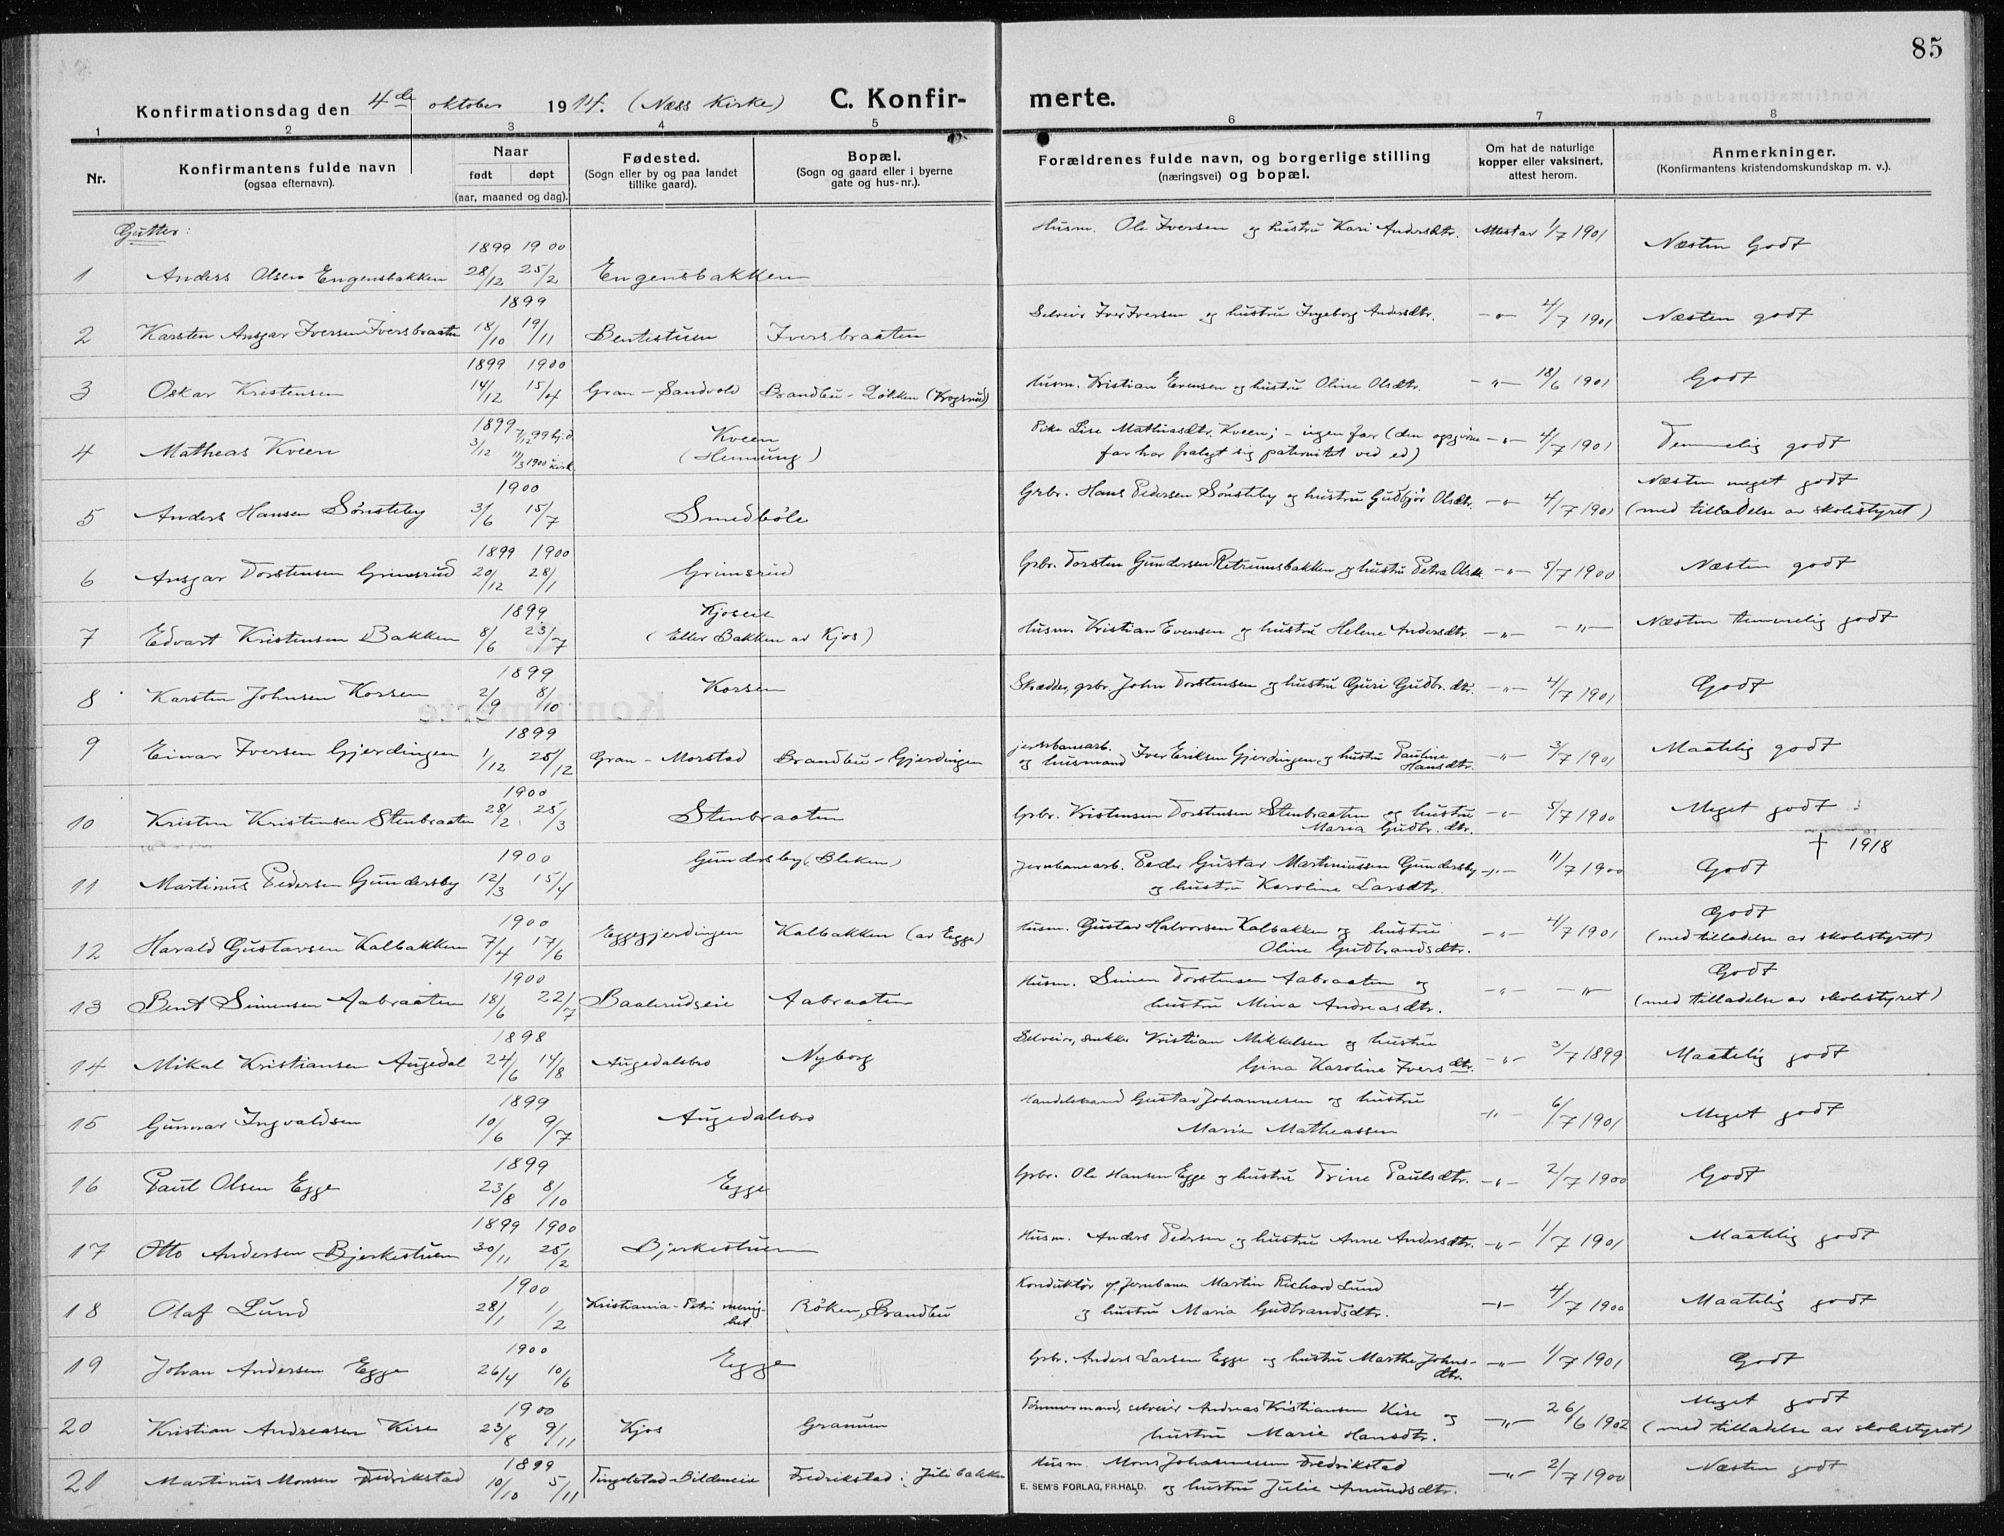 85
Konfirmationsdag den 4de oktober 1914. (Næss Kirke) C. Konfir- merte.
1 2 3 4 5 6 7 8
Nr. Konfirmantens fulde navn (ogsaa efternavn). Naar født døpt (aar, maaned og dag). Fødested. (Sogn eller by og paa landet tillike gaard). Bopæl. (Sogn og gaard eller i byerne gate og hus-nr.). Forældrenes fulde navn, og borgerlige stilling (næringsvei) og bopæl. Om hat de naturlige kopper eller vaksinert, attest herom. Anmerkninger. (Konfirmantens kristendomskundskap m. v.).
Gutter:
1 Anders Olsen Engensbakken 1899 28/12 1900 25/2 Engensbakken Husm. Ole Iversen og hustru Kari Andersdtr. Attest av 1/7 1901 Næsten Godt
2 Karsten Ansgar Iversen Iversbraaten 1899 18/10 19/11 Bentestuen Iversbraaten Selveier Iver Iversen og hustru Ingeborg Andersdtr. -"- 4/7 1901 Næsten godt
3 Oskar Kristensen 1899 14/12 1900 15/4 Gran - Sandvold Brandbu - Løkken (Krogsrud) Husm. Kristian Evensen og hustru Oline Olsdtr. -"- 18/6 1901 Godt
4 Matheas Kveen 1899 3/12 7/12 99 hj.d. 11/3 1900 kirk Kveen (Hennung) Pike Lise Mathiasdtr. Kveen; - ingen far (den opgivne far har fralagt sig paternitet ved ed) -"- 4/7 1901 Temmelig godt
5 Anders Hansen Sønsteby 1900 3/6 15/7 Smedbøle Grbr. Hans Pedersen Sønsteby og hustru Gudbjør Olsdtr. -"- 4/7 1901 Næsten meget godt (med tilladelse av skolestyret)
6 Ansgar Torstensen Grimsrud 1899 20/12 1900 28/1 Grimsrud Grbr. Torsten Gundersen Retrumsbakken og hustru Petra Olsdtr. -"- 5/7 1900 Næsten godt
7 Edvart Kristensen Bakken 1899 8/6 23/7 Kjoseie (Eller Bakken av Kjos) Husm. Kristian Evensen og hustru Helene Andersdtr. -"- -"- Næsten temmelig godt
8 Karsten Johnsen Korsen 1899 2/9 8/10 Korsen Skrædder, grbr. John Torstensen og hustru Guri Gudbr. dtr. -"- 4/7 1901 Godt
9 Einar Iversen Gjerdingen 1899 1/12 25/12 Gran - Morstad Brandbu - Gjerdingen jernbanearb. og husmand Iver Eriksen Gjerdingen og hustru Pauline Hansdtr. -"- 3/7 1901 Maatelig godt
10 Kristen Kristensen Stenbraaten 1900 28/2 25/3 Stenbraaten Grbr. Kristensen Torstensen Stenbraaten og hustru Maria Gudbr. dtr. -"- 5/7 1900 Meget godt
11 Martinus Pedersen Gundersby 1900 12/3 15/4 Gundersby (Bleken) Jernbanearb. Peder Gustav Martiniussen Gundersby og hustru Karoline Larsdtr. -"- 11/7 1900 Godt † 1918
12 Harald Gustavsen Kalbakken 1900 7/4 17/6 Eggegjerdingen Kalbakken (av Egge) Husm. Gustav Halvorsen Kalbakken og hustru Oline Gudbrandsdtr. -"- 4/7 1901 Godt (med tilladelse av skolestyret)
13 Bent Simensen Aabraaten 1900 18/6 22/7 Baalerudseie Aabraaten Husm. Simen Torstensen Aabraaten og hustru Mina Andreasdtr. -"- -"- Godt (med tilladelse av skolestyret)
14 Mikal Kristiansen Augedal 1898 24/6 14/8 Augedalsbro Nyborg Selveier, snekker Kristian Mikkelsen og hustru Gina Karoline Iversdtr. -"- 3/7 1899 Maatelig godt
15 Gunnar Ingvaldsen 1899 10/6 9/7 Augedalsbro Handelsmand Gustav Johannesen og hustru Marie Matheassen -"- 6/7 1901 Meget godt
16 Paul Olsen Egge 1899 23/8 8/10 Egge Grbr. Ole Hansen Egge og hustru Trine Paulsdtr. -"- 2/7 1900 Godt
17 Otto Andersen Bjerkestuen 1899 30/11 1900 25/2 Bjerkestuen Husm. Anders Pedersen og hustru Anne Andersdtr. -"- 1/7 1901 Maatelig godt
18 Olaf Lund 1900 28/1 1/2 Kristiania - Petri menighet Røken, Brandbu Konduktør v/ Jernbanen Martin Richard Lund og hustru Maria Gudbrandsdtr. -"- 4/7 1900 Maatelig godt
19 Johan Andersen Egge 1900 26/4 10/6 Egge Grbr. Anders Larsen Egge og hustru Marthe Johnsdtr. -"- 1/7 1901 Godt
20 Kristian Andreasen Kise 1900 23/8 9/11 Kjos Granum Tømmermand, selveier Andreas Kristiansen Kise og hustru Marie Hansdtr. -"- 26/6 1902 Meget godt (med tilladelse av skolestyret)
21 Martinus Monsen Fredrikstad 1899 10/10 5/11 Tingelstad - Bildeneie Fredrikstad i Julibakken Husm. Mons Johannessen Fredrikstad og hustru Julie Amundsdtr. -"- 2/7 1900 Næsten godt
E. SEM'S FORLAG, FR.HALD.